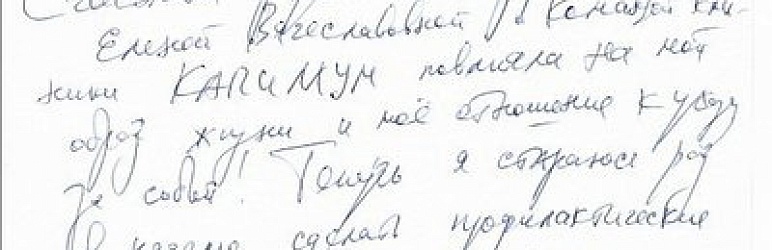 Еленой Вячеславовной в
ники КАПИМУН повлияла на мой
образ жизни и моё отношение к уходу
за собой! Теперь я стараюсь раз
в сделать профилактические